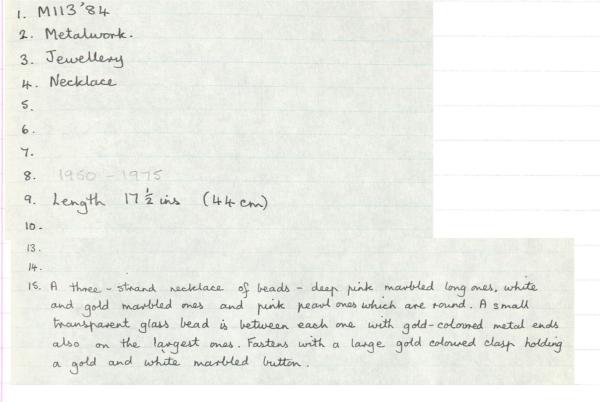 1. M113'84
2. Metalwork.
3. Jewellery
4. Necklace
5.
6.
7.
8. 1950 - 1975
9. Length 17 1/2 ins (44 cm)
10.
13.
14.
15. A three - strand necklace of beads - deep pink marbled long ones, white
and gold marbled ones and pink pearl ones which are round. A small
transparent glass bead is between each one with gold-coloured metal ends
also on the largest ones. Fastens with a large gold coloured clasp holding
a gold and white marbled button.